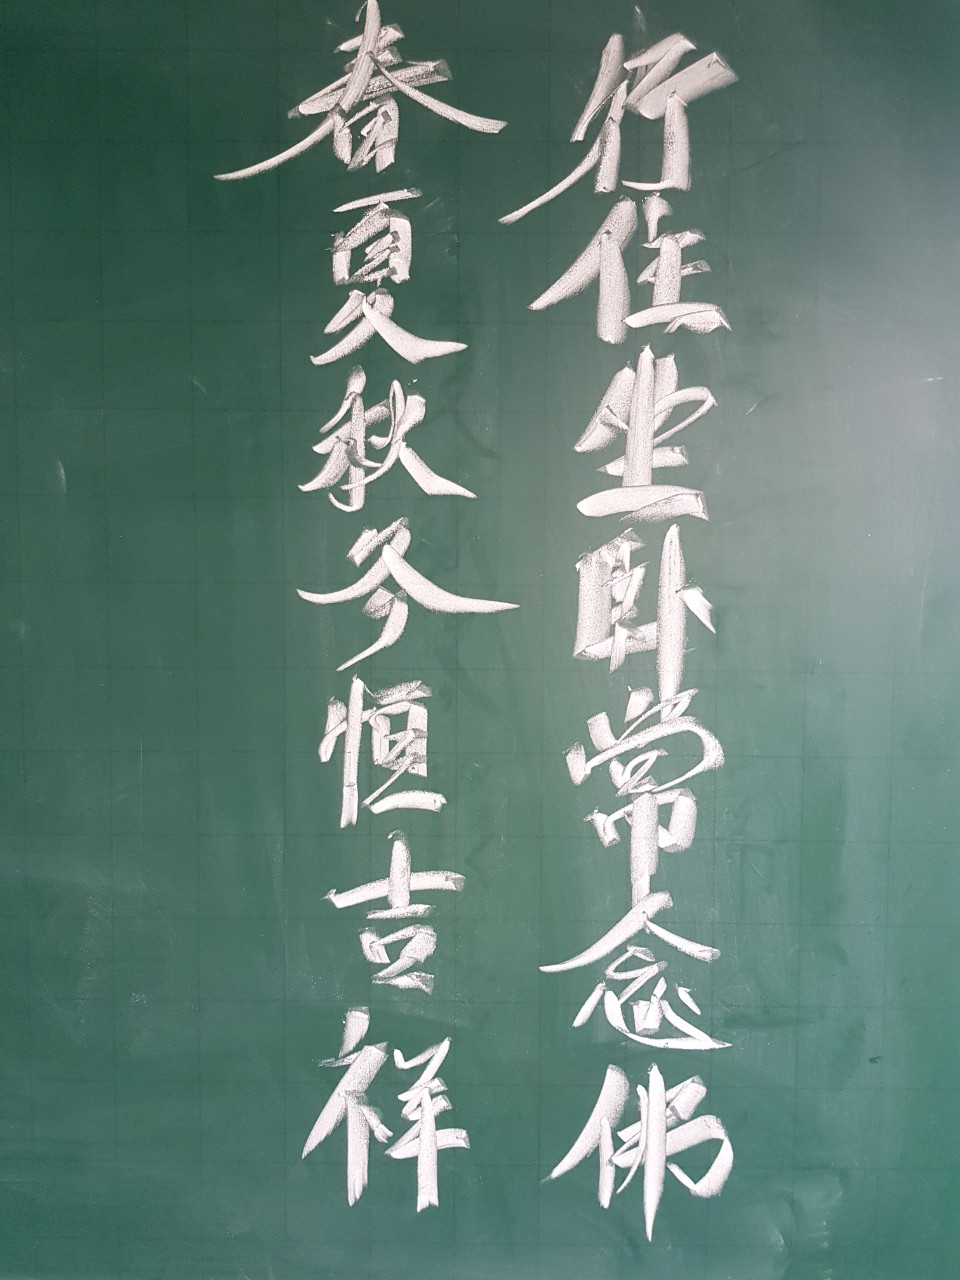 行住坐臥常念佛
春夏秋冬恒吉祥